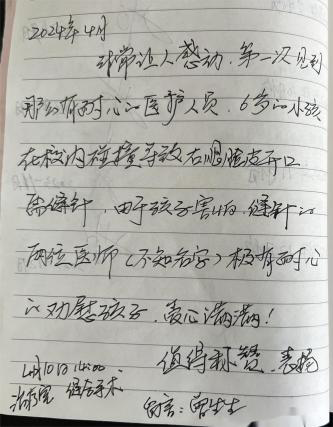 2024年4月
非常让人感动，第一次见到
那么有耐心的医护人员，6岁的小孩
在校内碰撞导致右眼脸皮开口
需缝针，由于孩子害怕，缝针的
两位医师（不知名字）极有耐心
的劝慰孩子，爱心满满！
值得称赞，表扬
4月10日 14:00
缝合手术
留言：